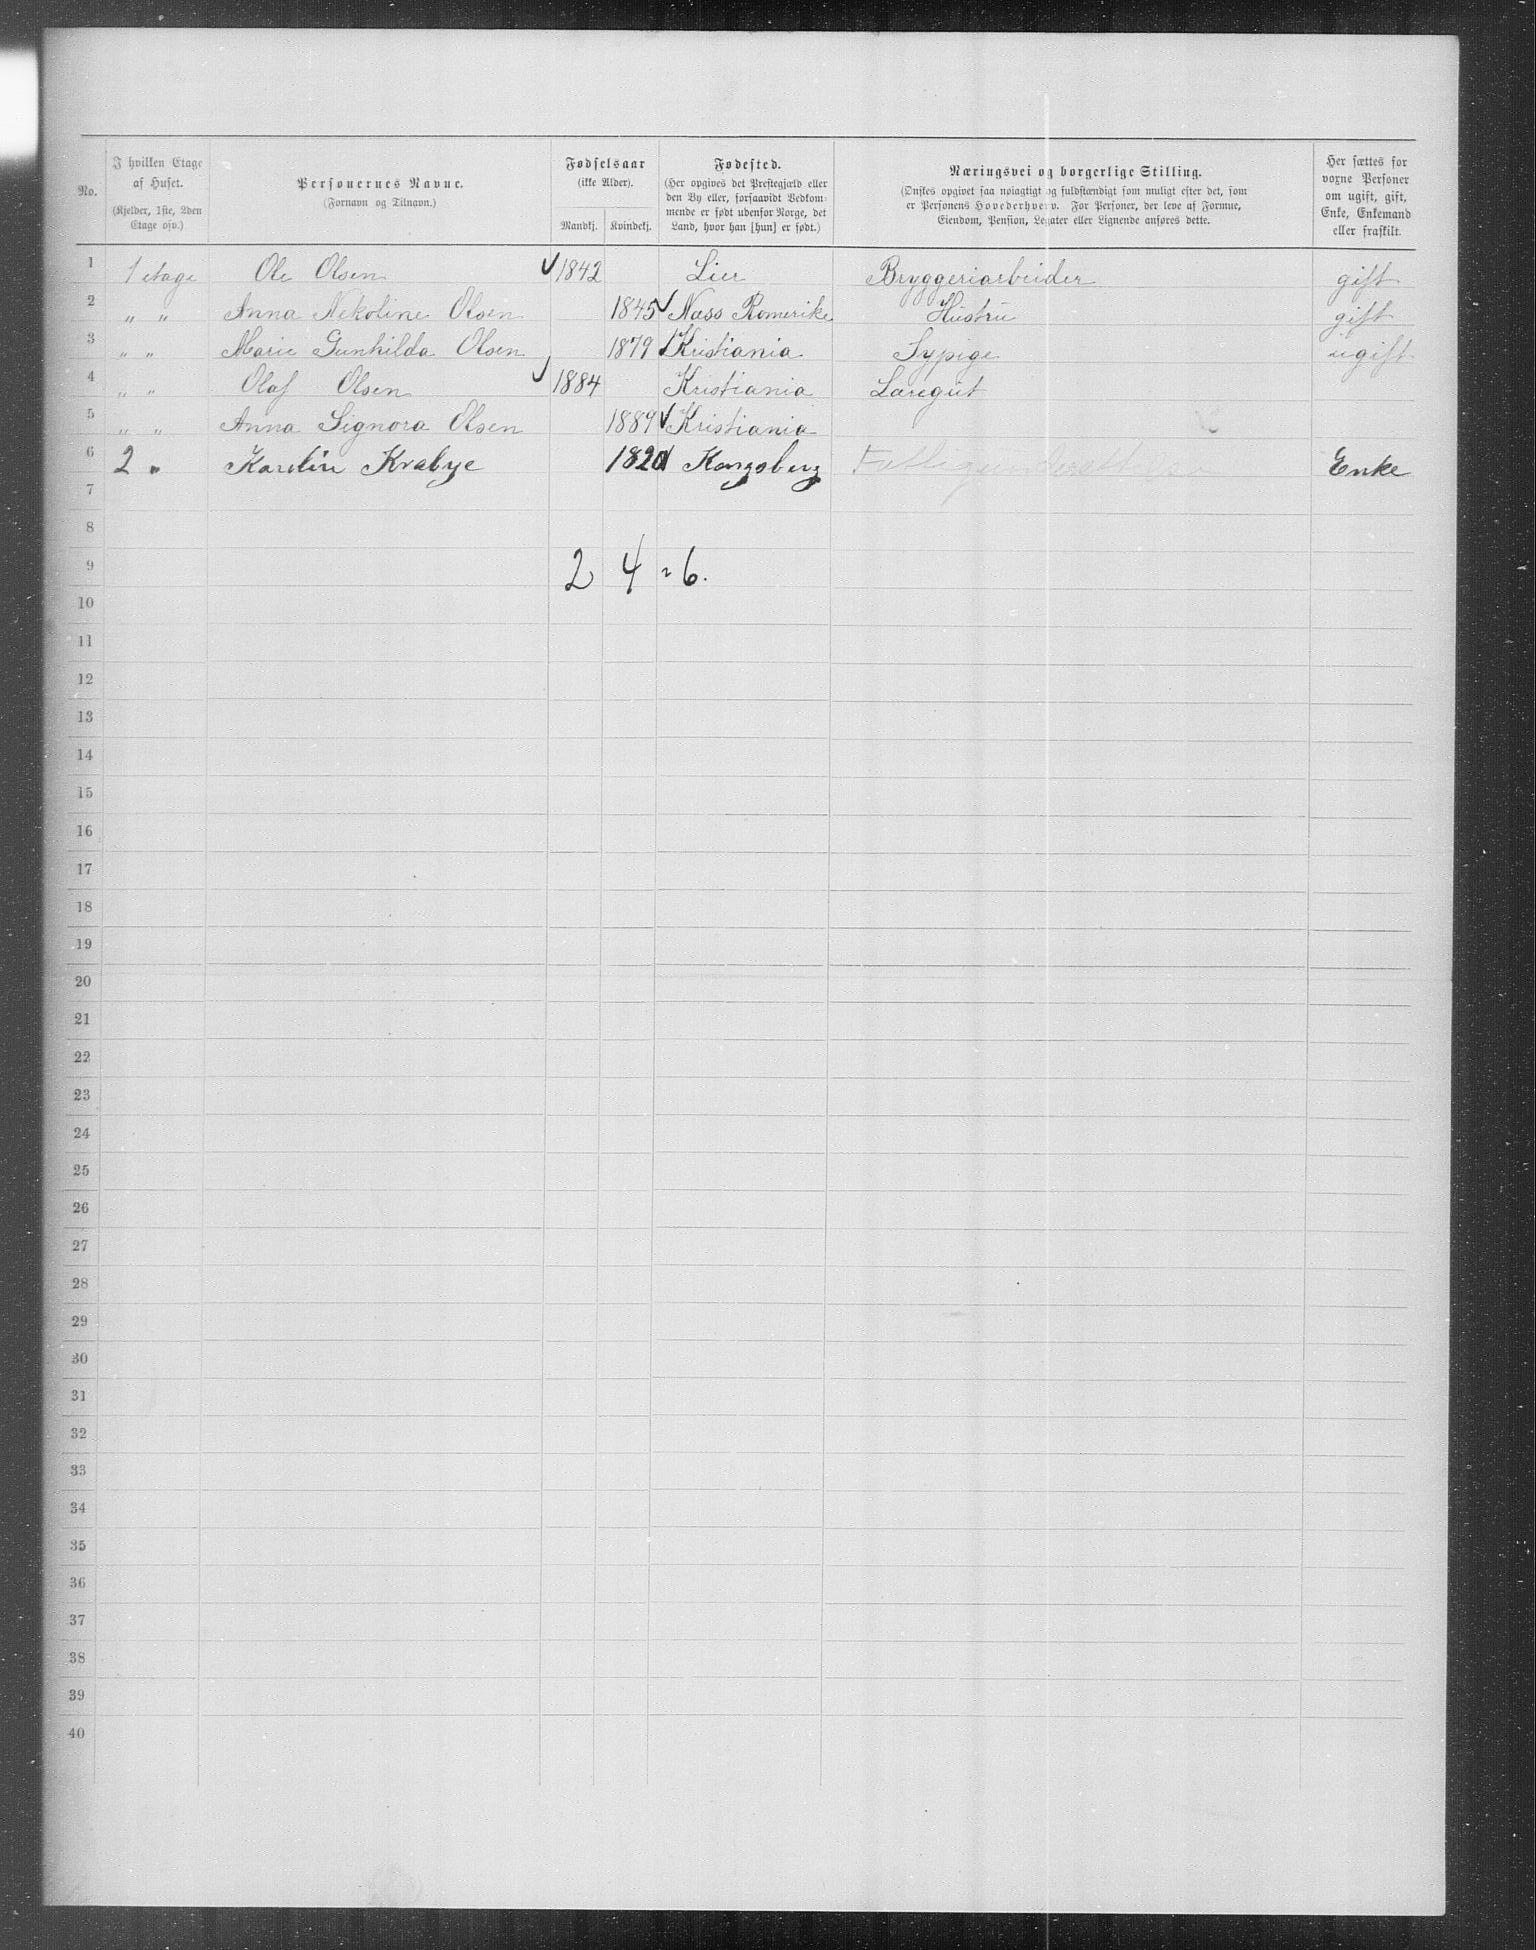 No.
I hvilken Etage af Huset.
(Kjelder, 1ste, 2den Etage osv.)
Personernes Navne.
(Fornavn og Tilnavn.)
Fødselsaar
(ikke Alder).
Mandkj. Kvindekj.
Fødested.
(Her opgives det Prestegjæld eller
den By eller, forsaavidt Vedkom-
mende er født udenfor Norge, det
Land, hvor han [hun] er født.)
Næringsvei og borgerlige Stilling.
(Ønskes opgivet saa nøiagtigt og fuldstændigt som muligt efter det, som
er Personens Hovederhverv. For Personer, der leve af Formue,
Eiendom, Pension, Legater eller Lignende anføres dette.
Her sættes for
voxne Personer
om ugift, gift,
Enke, Enkemand
eller fraskilt.
1 1 etage Ole Olsen 1842 Lier Bryggeriarbeider gift
2 „ „ Anna Nekoline Olsen 1845 Næss Romerike Hustru gift
3 „ „ Marie Gunhilda Olsen 1879 Kristiania Sypige ugift
4 „ „ Olaf Olsen 1884 Kristiania Læregut
5 „ „ Anna Signora Olsen 1889 Kristiania
6 2 „ Karelin Krabye 1820 Kongsberg Enke
7
8
9 2 4 = 6.
10
11
12
13
14
15
16
17
18
19
20
21
22
23
24
25
26
27
28
29
30
31
32
33
34
35
36
37
38
39
40